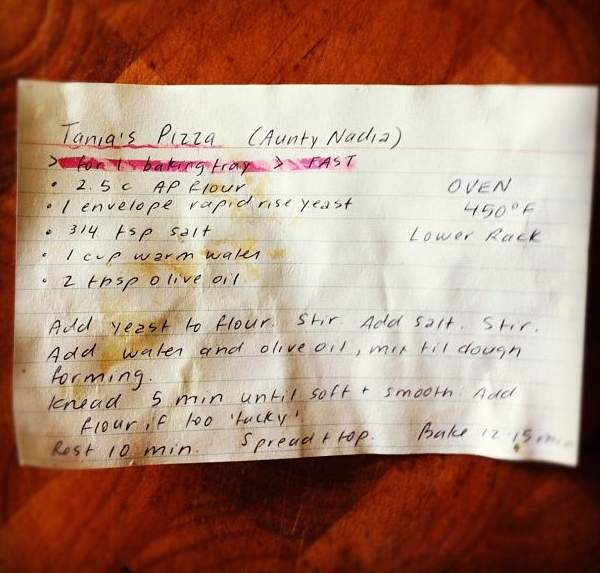 Tania's Pizza (Aunty Nadia)
> for 1 baking tray > FAST
• 2.5 c AP flour
OVEN
• 1 envelope rapid rise yeast
450°F
• 3/4 tsp salt
Lower Rack
• 1 cup warm water
• 2 tbsp olive oil
Add yeast to flour. Stir. Add salt. Stir.
Add water and olive oil, mix til dough
forming.
Knead 5 min until soft + smooth. Add
flour if too 'tacky'
Rest 10 min. Spread + top. Bake 12-15 min